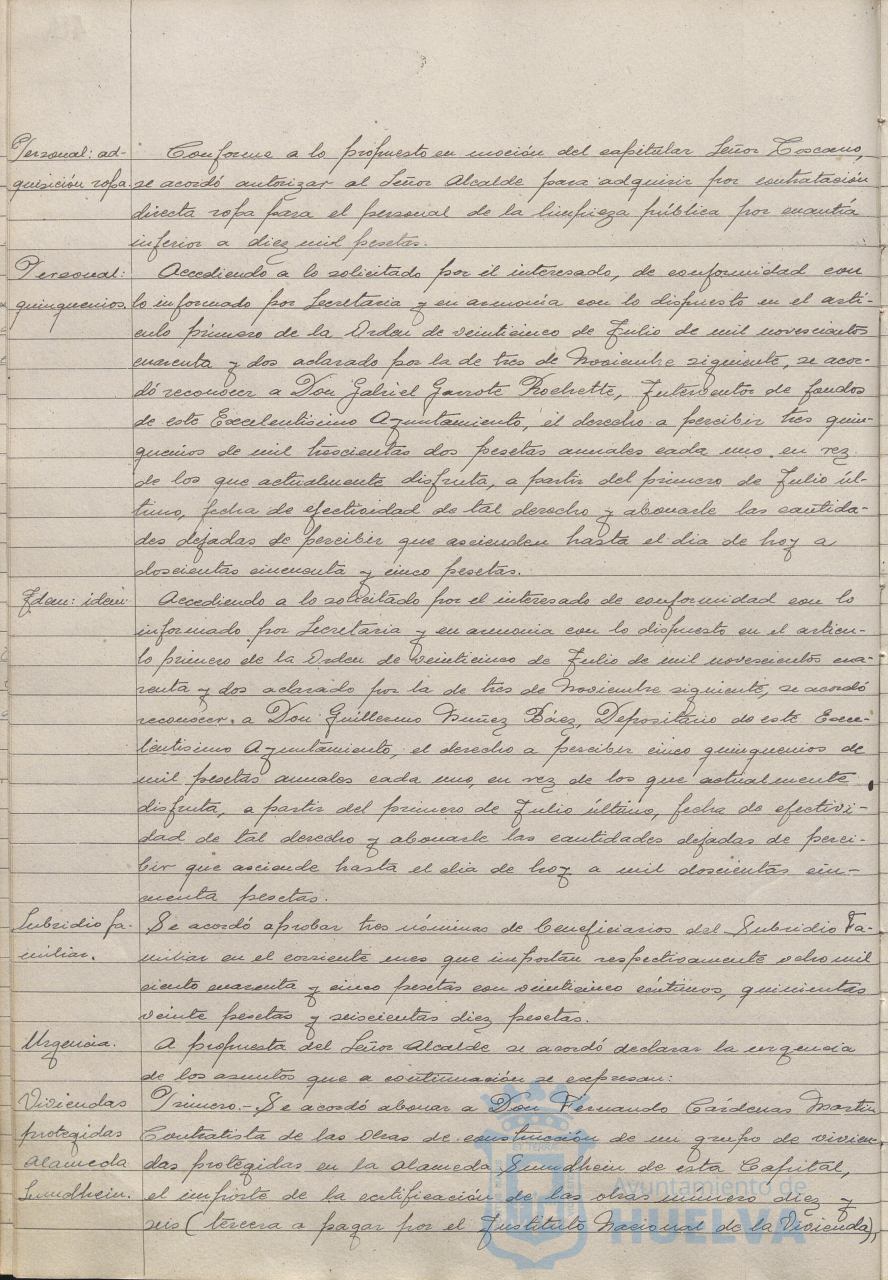 Personal: ad- Conforme a lo propuesto en moción del capitular Señor Toscano,
quisición ropa. se acordó autorizar al Señor Alcalde para adquirir por contratación
directa ropa para el personal de la limpieza pública por cuantía
inferior a diez mil pesetas.
Personal: Accediendo a lo solicitado por el interesado, de conformidad con
quinquenios. lo informado por Secretaria y en armonía con lo dispuesto en el artí-
culo primero de la Orden de veinticinco de Julio de mil novescientos
cuarenta y dos aclarado por la de tres de Noviembre siguiente, se acor-
dó reconocer a Don Gabriel Garrote Rochette, Interventor de fondos
de este Excelentísimo Ayuntamiento, el derecho a percibir tres quin-
quenios de mil trescientas dos pesetas anuales cada uno, en vez
de los que actualmente disfruta, a partir del primero de Julio úl-
timo, fecha de efectividad de tal derecho y abonarle las cantida-
des dejadas de percibir que ascienden hasta el dia de hoy a
doscientas cincuenta y cinco pesetas.
Idem: idem Accediendo a lo solicitado por el interesado de conformidad con lo
informado por Secretaria y en armonia con lo dispuesto en el articu-
lo primero de la Orden de veinticinco de Julio de mil novescientos cua-
renta y dos aclarado por la de tres de Noviembre siguiente, se acordó
reconocer a Don Guillermo Nuñez Báez, Depositario de este Exce-
lentisimo Ayuntamiento, el derecho a percibir cinco quinquenios de
mil pesetas anuales cada uno, en vez de los que actualmente
disfruta, a partir del primero de Julio último, fecha de efectivi-
dad de tal derecho y abonarle las cantidades dejadas de perci-
bir que asciende hasta el dia de hoy a mil doscientas cin-
cuenta pesetas.
Subsidio fa- Se acordó aprobar tres nóminas de beneficiarios del Subsidio Fa-
miliar. miliar en el corriente mes que importan respectivamente ocho mil
ciento cuarenta y cinco pesetas con veinticinco céntimos, quinientas
veinte pesetas y seiscientas diez pesetas.
Urgencia. A propuesta del Señor Alcalde se acordó declarar la urgencia
de los asuntos que a continuación se expresan:
Viviendas Primero.- Se acordó abonar a Don Fernando Cárdenas Martin
protegidas Contratista de las Obras de construcción de un grupo de vivien-
Alameda das protegidas en la Alameda Sundhein de esta Capital,
Sundhein. el importe de la certificación de las obras número diez y
seis (tercera a pagar por el Instituto Nacional de la Vivienda),
Ayuntamiento de
HUELVA